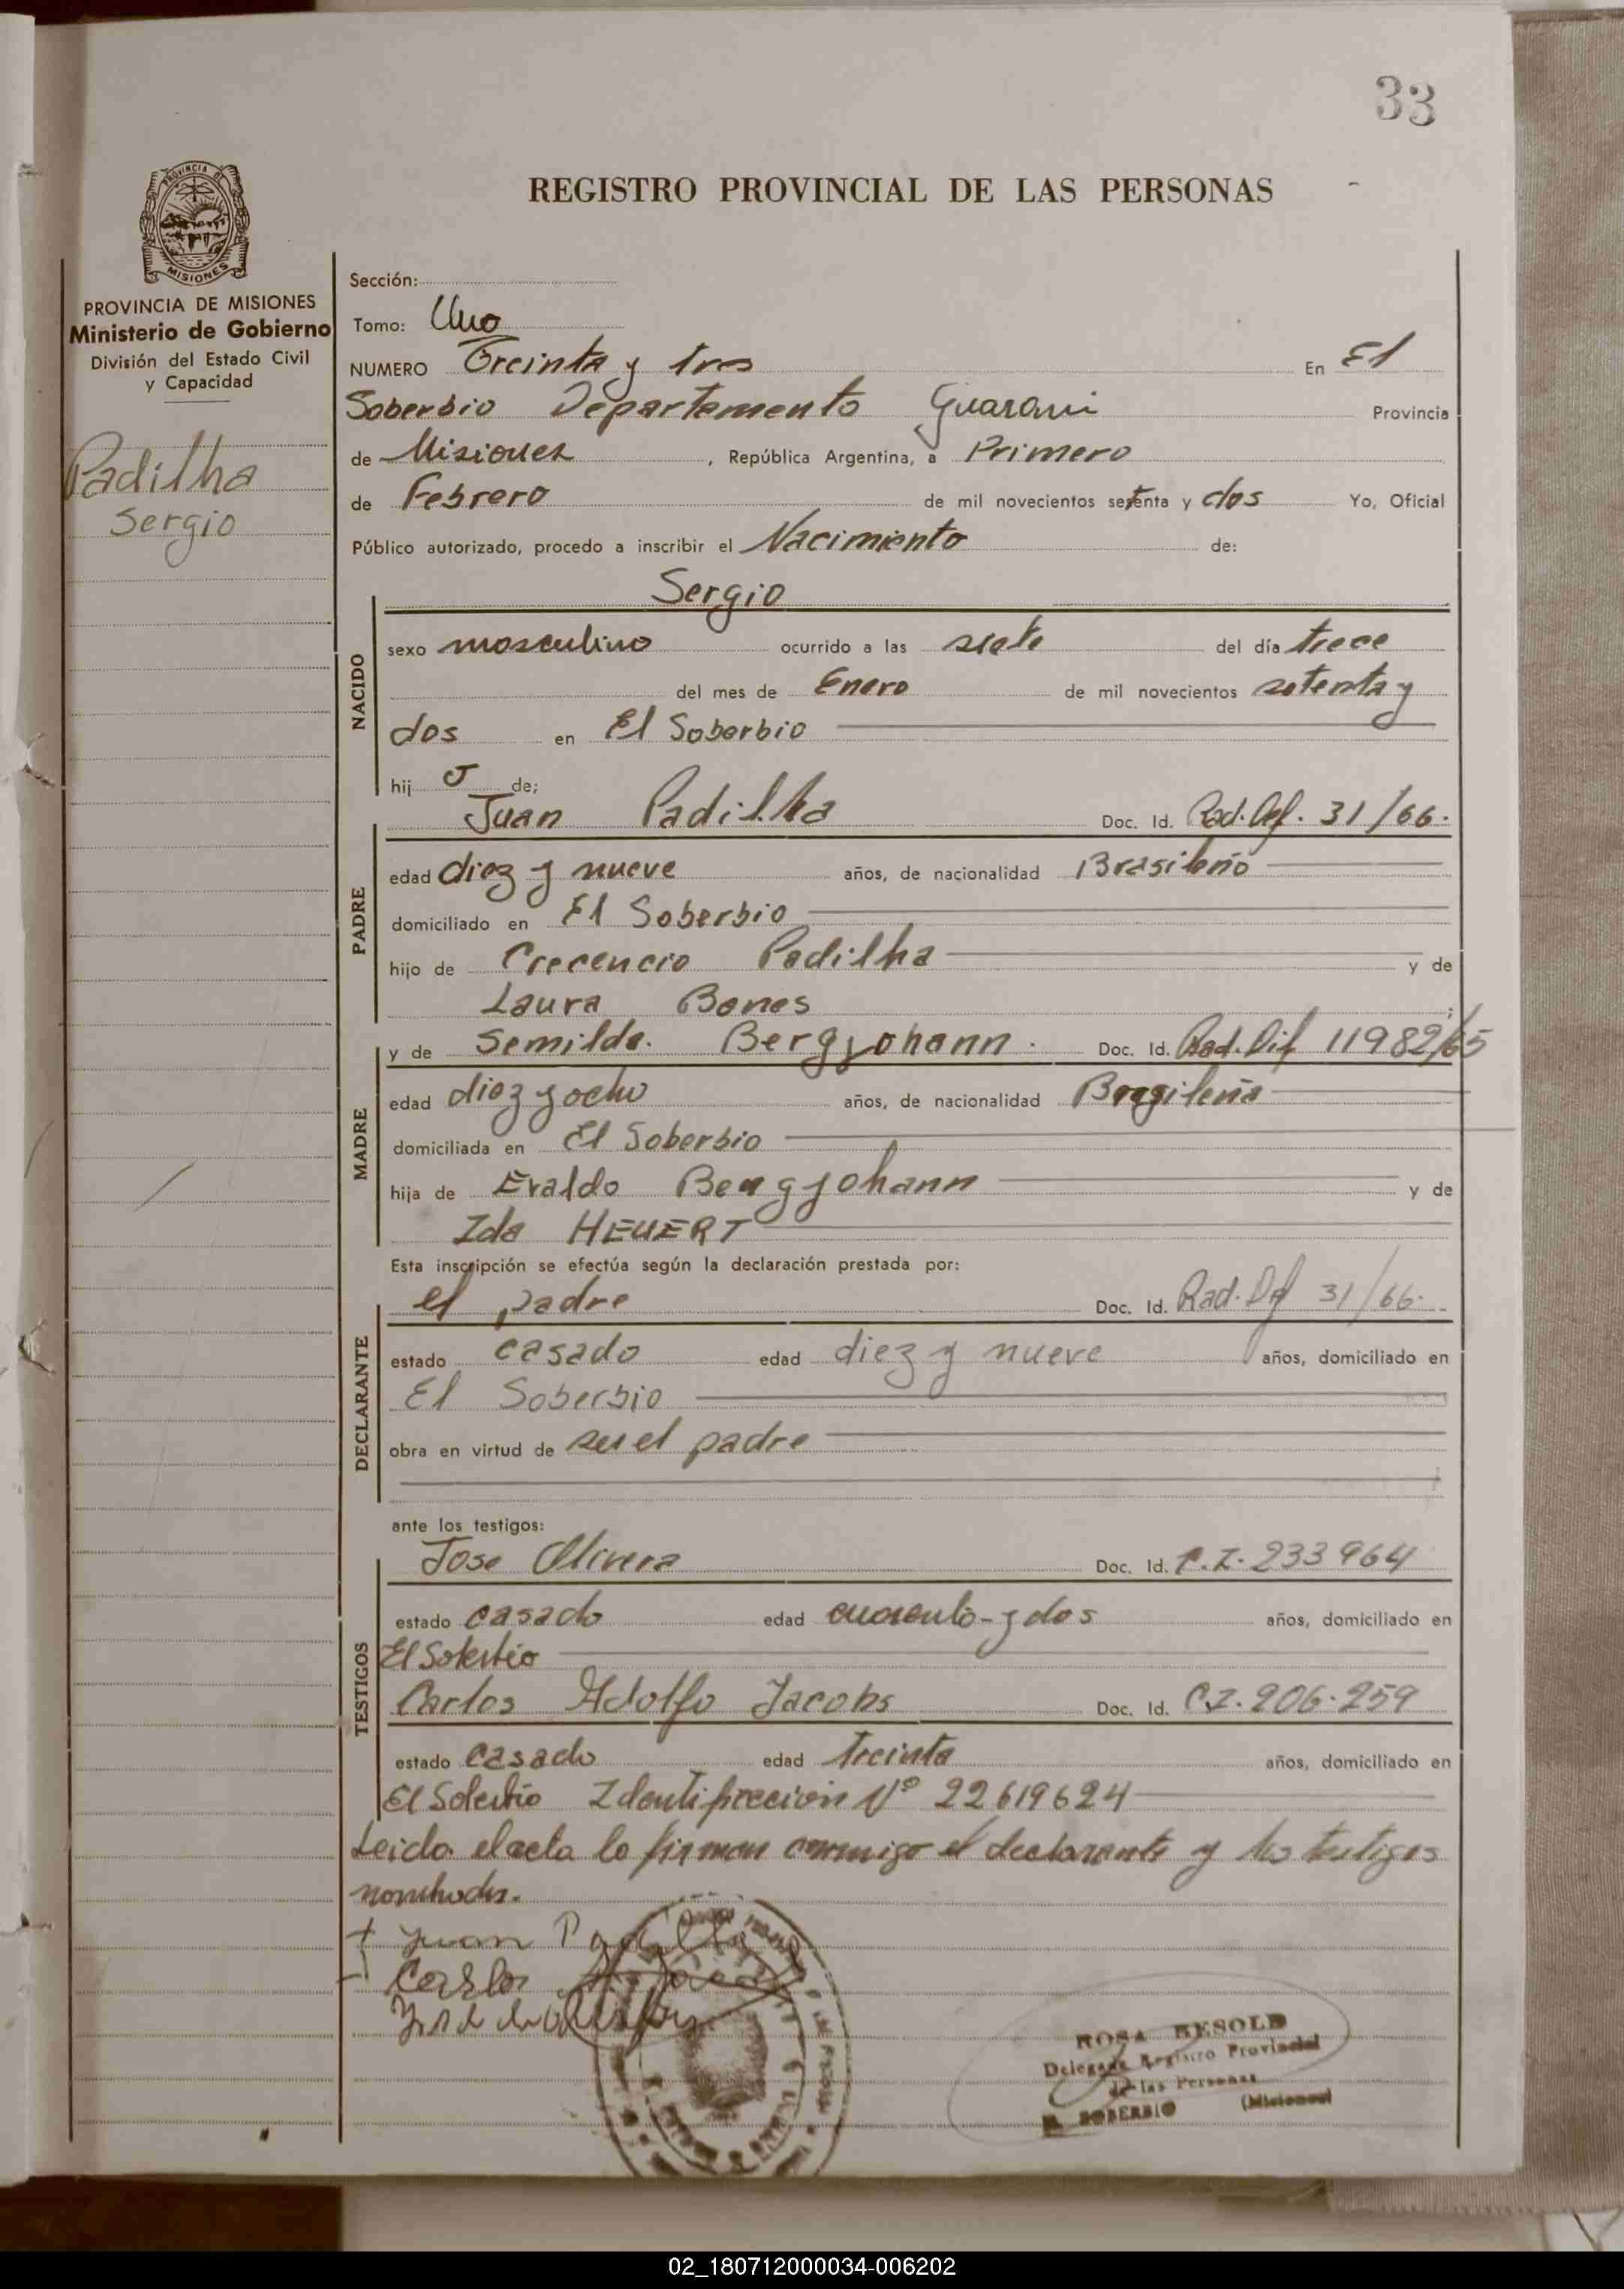 33
PROVINCIA DE
MISIONES
REGISTRO PROVINCIAL DE LAS PERSONAS
PROVINCIA DE MISIONES
Ministerio de Gobierno
División del Estado Civil
y Capacidad
Padilha
Sergio
Sección:
Tomo: Uno
NUMERO Treinta y tres En El
Soberbio Departamento Guarani Provincia
de Misiones , República Argentina, a Primero
de Febrero de mil novecientos setenta y dos Yo, Oficial
Público autorizado, procedo a inscribir el Nacimiento de:
Sergio
NACIDO
sexo masculino ocurrido a las siete del día trece
del mes de Enero de mil novecientos setenta y
dos en El Soberbio
hij o de;
Juan Padilha Doc. Id. Rad. Def. 31/66.
PADRE
edad diez y nueve años, de nacionalidad Brasileño
domiciliado en El Soberbio
hijo de Crecencio Padilha y de
Laura Bones ;
y de Semilda. Bergjohann. Doc. Id. Rad. Dif 11982/65
MADRE
edad diez y ocho años, de nacionalidad Brasileña
domiciliada en El Soberbio
hija de Evaldo Bergjohann y de
Ida HEUERT
Esta inscripción se efectúa según la declaración prestada por:
el padre Doc. Id. Rad. Def 31/66.
DECLARANTE
estado casado edad diez y nueve años, domiciliado en
El Soberbio
obra en virtud de ser el padre
ante los testigos:
Jose Olivera Doc. Id. C.I. 233964
TESTIGOS
estado casado edad cuarenta y dos años, domiciliado en
El Soberbio
Carlos Adolfo Jacobs Doc. Id. C.I. 206.259
estado casado edad treinta años, domiciliado en
El Soberbio Identificacion Nº 22619624
Leida el acta la firman conmigo el declarante y los testigos
nombrados.
Juan Padilha
Carlos
ROSA BESOLD
Delegada Registro Provincial
de las Personas
EL SOBERBIO (Misiones)
02_180712000034-006202